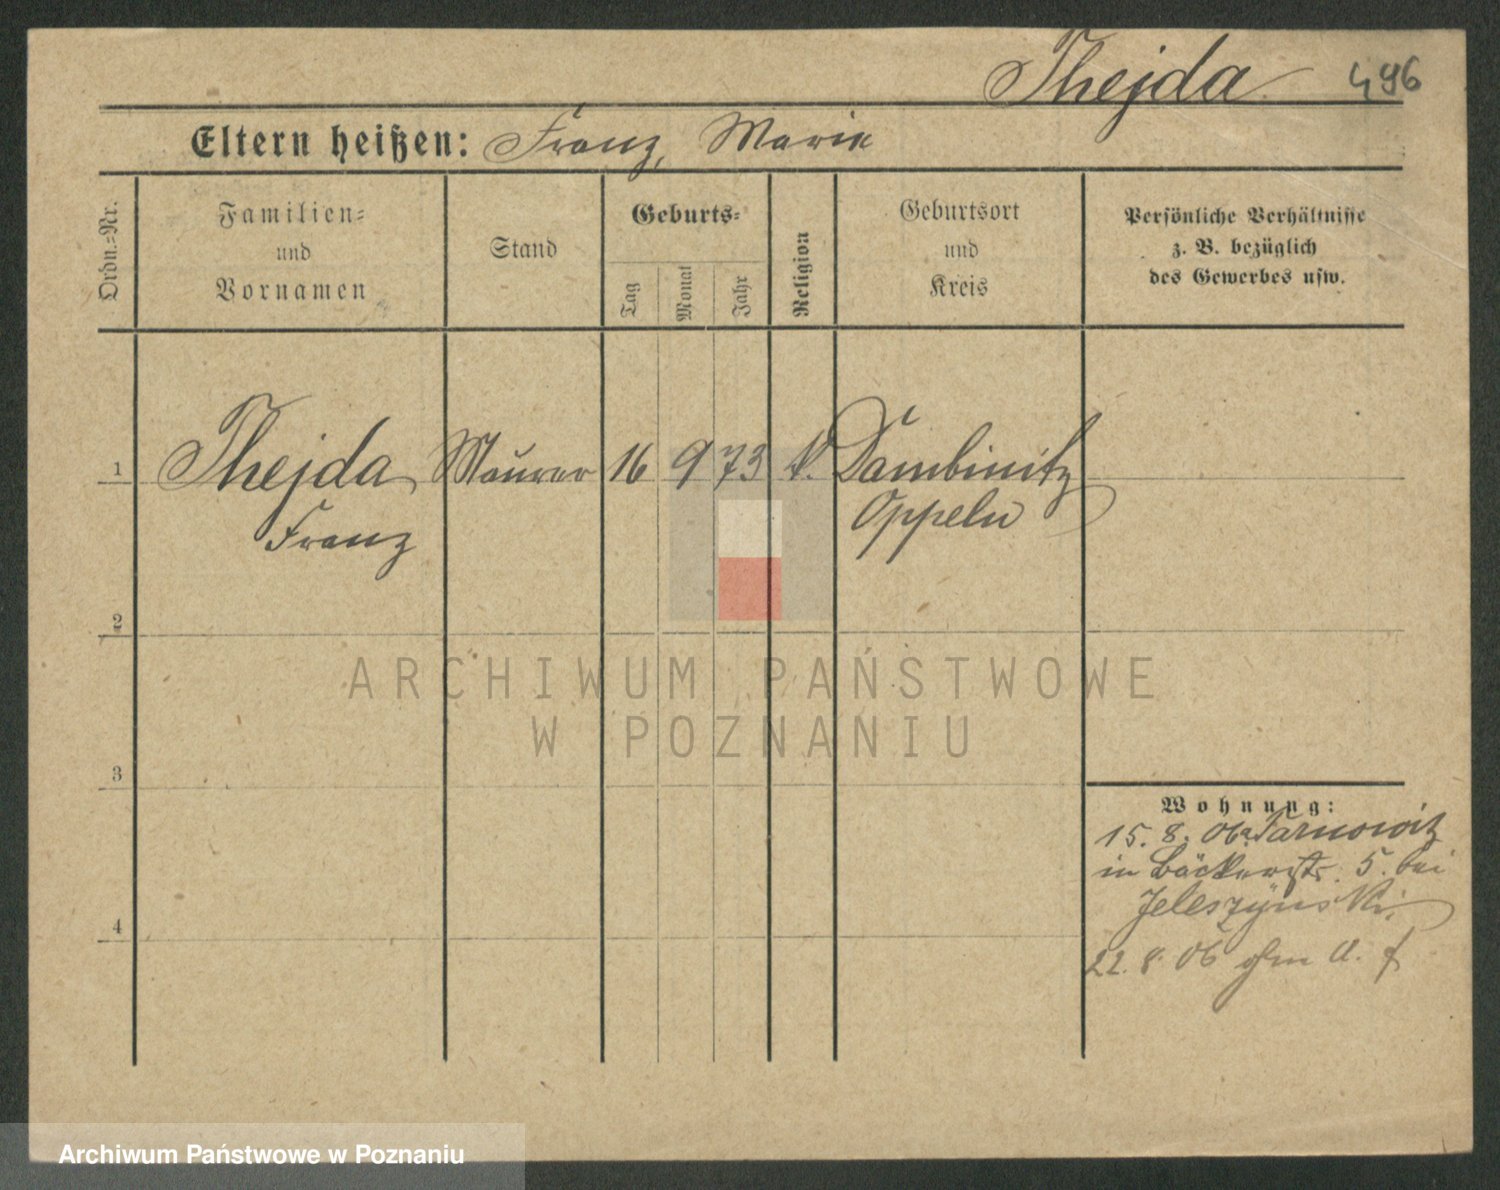 Thejda 496
Eltern heißen: Franz, Marie
Ordn.=Nr.
Familien=
und
Vornamen
Stand
Geburts=
Tag
Monat
Jahr
Religion
Geburtsort
und
Kreis
Persönliche Verhältnisse
z. B. bezüglich
des Gewerbes usw.
1 Thejda Maurer 16 9 73 k. Dambinitz
Franz Oppeln
2
3
4
Wohnung:
15. 8. 06 Tarnowitz
in Bäckerstr. 5. bei
Jeleszynski
22. 8. 06
ARCHIWUM PAŃSTWOWE
W POZNANIU
Archiwum Państwowe w Poznaniu